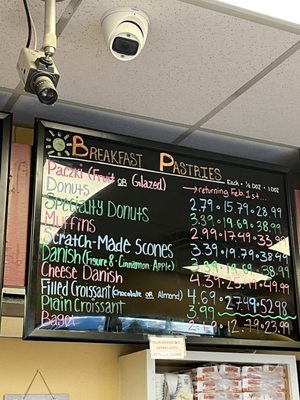 Breakfast Pastries
Each · ½ Doz · 1 Doz
Paczki (Fruit or Glazed) → returning Feb. 1st...
Donuts 2.79 · 15.79 · 28.99
Specialty Donuts 3.39 · 19.69 · 38.99
Muffins 2.99 · 17.49 · 33.99
Scratch-Made Scones 3.39 · 19.79 · 38.99
Danish (Figure 8 · Cinnamon · Apple) 3.39 · 19.69 · 38.99
Cheese Danish 4.39 49.99
Filled Croissant (Chocolate or Almond) 4.69 · 27.49 · 52.98
Plain Croissant 3.99
Bagel 12.79 · 23.99